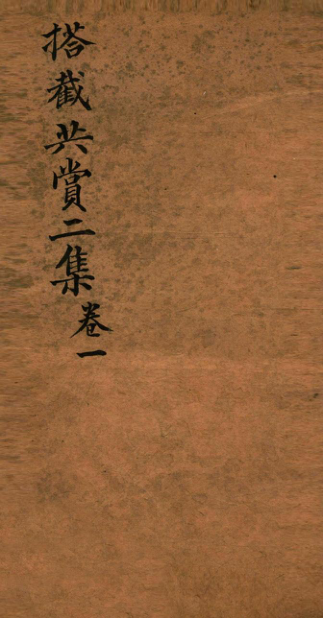 搭截共賞二集卷一